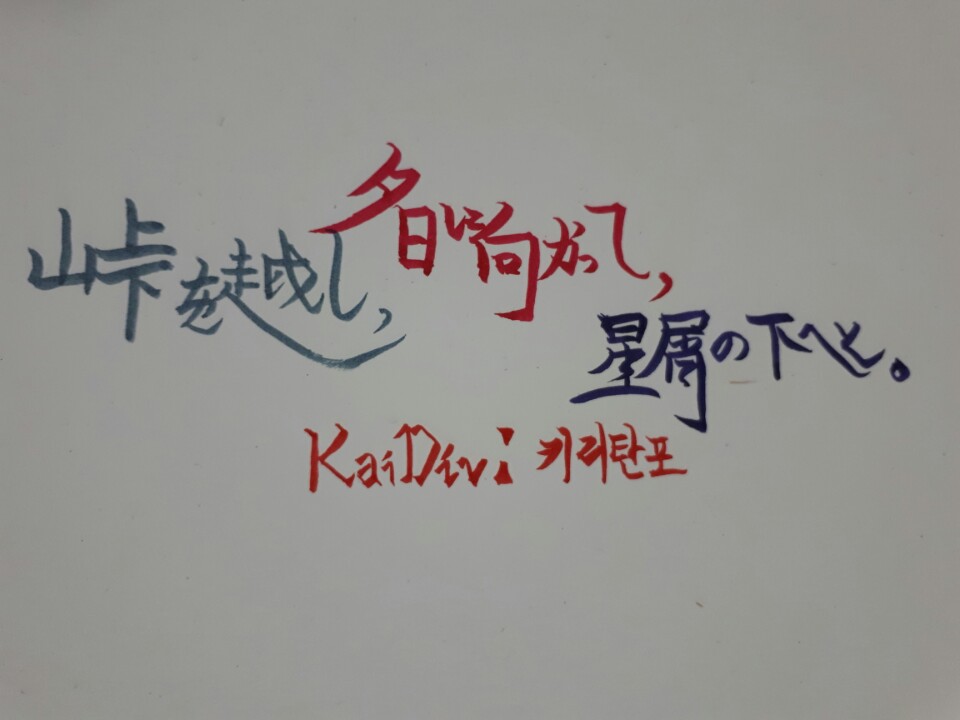 峠を越し,
夕日に向かって,
星屑の下へと。
KaiDivi 키리탄포